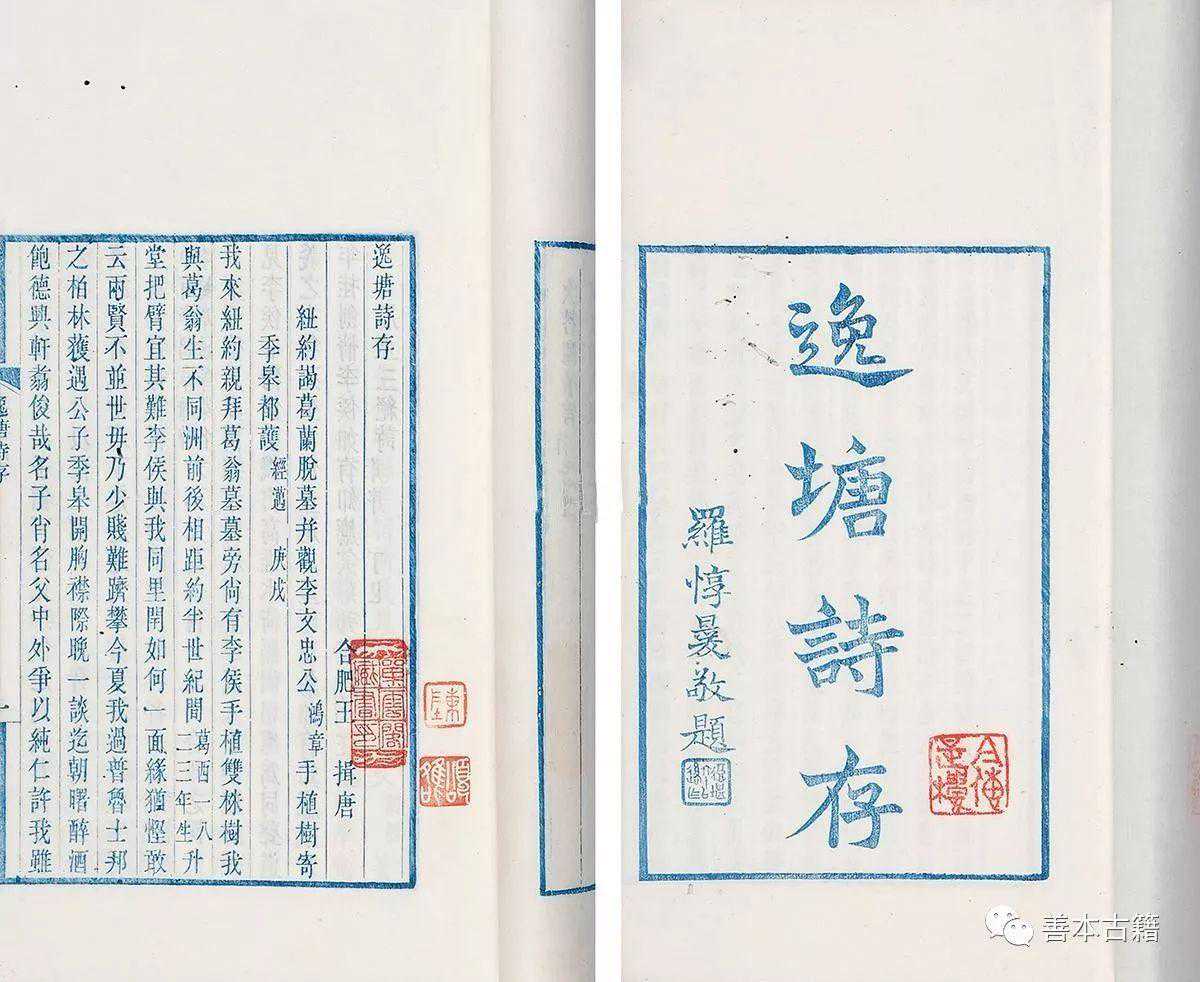 逸塘詩存
羅惇㬊敬題
逸塘詩存
合肥王 揖唐
紐約謁葛蘭脫墓并觀李文忠公鴻章手植樹寄
季皋都護經邁 庚戌
我來紐約親拜葛翁墓墓旁尙有李侯手植雙株樹我
與葛翁生不同洲前後相距約半世紀間葛西一八二三年生升
堂把臂宜其難李侯與我同里閈如何一面緣猶慳敢
云兩賢不並世毋乃少賤難躋攀今夏我過普魯士邦
之柏林蒦遇公子季皋開胸襟際晚一談迄朝曙醉酒
飽德興軒翥俊哉名子肖名父中外爭以純仁許我雖
逸塘詩存
善本古籍